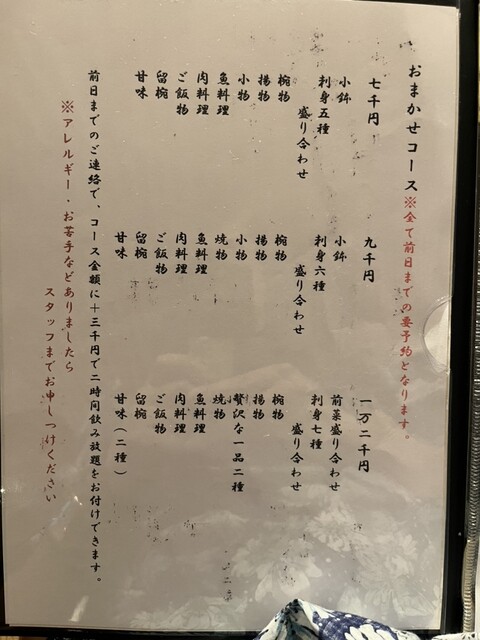 おまかせコース※全て前日までの要予約となります。
七千円
小鉢
刺身五種
盛り合わせ
椀物
揚物
小物
魚料理
肉料理
ご飯物
留椀
甘味
九千円
小鉢
刺身六種
盛り合わせ
椀物
揚物
小物
焼物
魚料理
肉料理
ご飯物
留椀
甘味
一万二千円
前菜盛り合わせ
刺身七種
盛り合わせ
椀物
揚物
贅沢な一品二種
焼物
魚料理
肉料理
ご飯物
留椀
甘味（二種）
前日までのご連絡で、コース金額に＋三千円で二時間飲み放題をお付けできます。
※アレルギー・お苦手などありましたら
スタッフまでお申しつけください